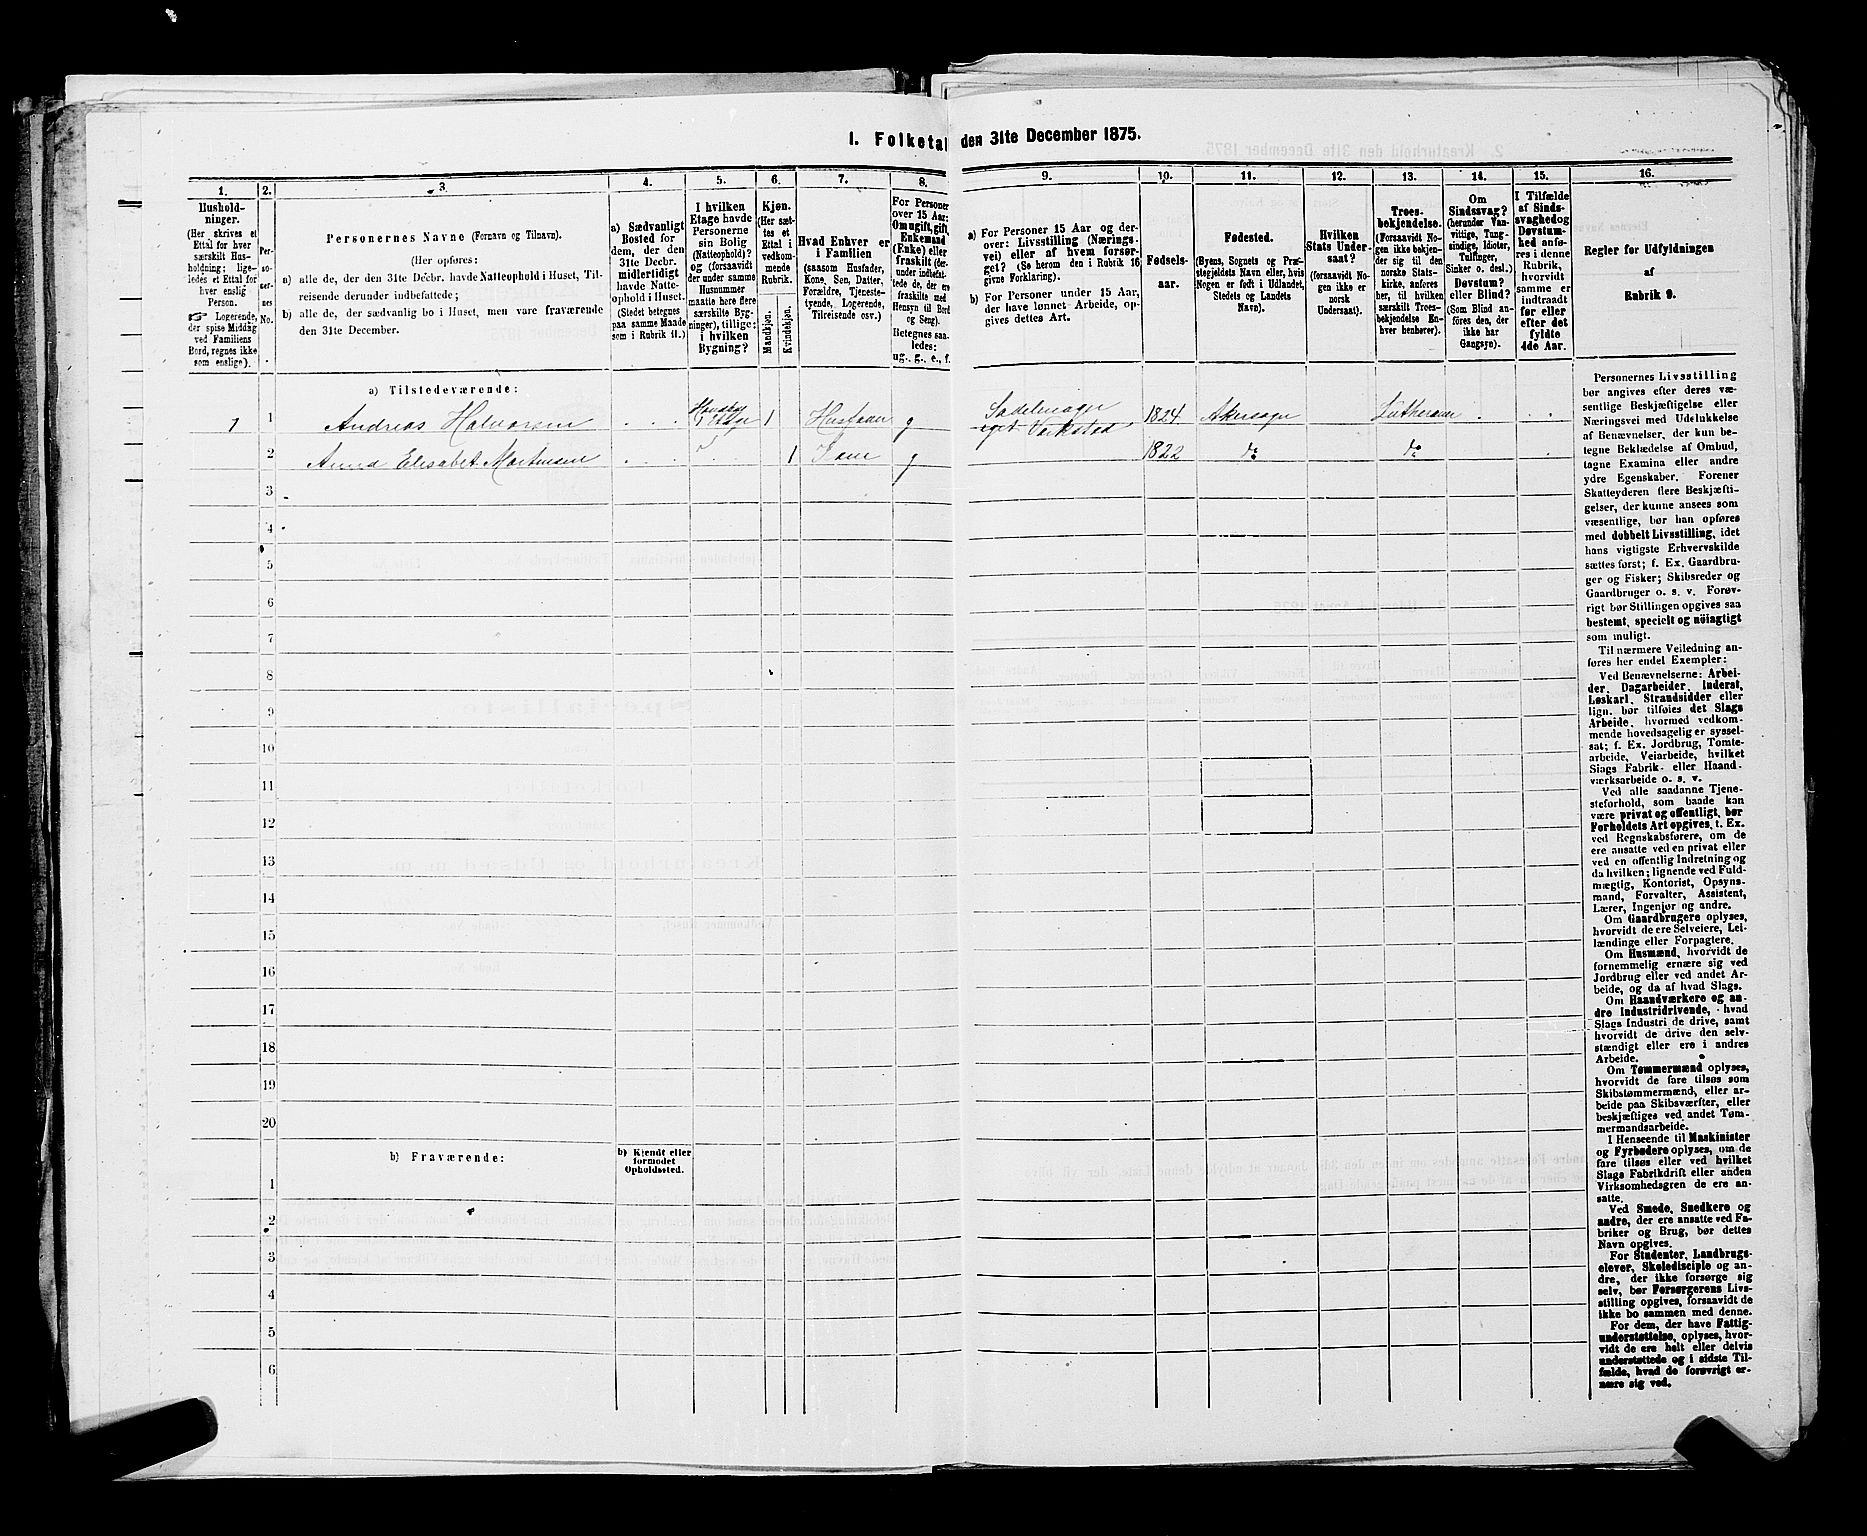 I. Folketal den 31te December 1875.
1.
2.
3.
4.
5.
6.
7.
8.
9.
10.
11.
12.
13.
14.
15.
16.
Hushold-
ninger.
(Her skrives et
Ettal for hver
særskilt Hus-
holdning; lige-
ledes et Ettal for
hver enslig
Person.
☞ Logerende,
der spise Middag
ved Familiens
Bord, regnes ikke
som enslige).
Per-
so-
ner-
nes
No.
Personernes Navne (Fornavn og Tilnavn).
(Her opføres:
a) alle de, der den 31te Decbr. havde Natteophold i Huset, Til-
reisende derunder indbefattede;
b) alle de, der sædvanlig bo i Huset, men vare fraværende
den 31te December.
a) Sædvanligt
Bosted for
dem, der den
31te Decbr.
midlertidigt
havde Natte-
ophold i Huset.
(Stedet betegnes
paa samme Maade
som i Rubrik 11.)
I hvilken
Etage havde
Personerne
sin Bolig
(Natteophold)?
og (forsaavidt
der under samme
Husnummer
maatte høre flere
særskilte Byg-
ninger), tillige:
i hvilken
Bygning?
Kjøn.
(Her sæt-
tes et
Ettal i
vedkom-
mende
Rubrik.
Mandkjøn.
Kvindekjøn.
Hvad Enhver er
i Familien
(saasom Husfader,
Kone, Søn, Datter,
Forældre, Tjeneste-
tyende, Logerende,
Tilreisende osv.)
For Personer
over 15 Aar:
Om ugift, gift,
Enkemand
(Enke) eller
fraskilt (der-
under indbefat-
tede de, der ere
fraskilte med
Hensyn til Bord
og Seng).
Betegnes saa-
ledes:
ug., g., e., f.
a) For Personer 15 Aar og der-
over: Livsstilling (Nærings-
vei) eller af hvem forsør-
get? (Se herom den i Rubrik 16
givne Forklaring).
b) For Personer under 15 Aar,
der have lønnet Arbeide, op-
gives dettes Art.
Fødsels-
aar.
Fødested.
(Byens, Sognets og Præ-
stegjeldets Navn eller, hvis
Nogen er født i Udlandet,
Stedets og Landets
Navn).
Hvilken
Stats Under-
saat?
(forsaavidt No-
gen ikke er
norsk
Undersaat).
Troes-
bekjendelse.
(Forsaavidt No-
gen ikke bekjen-
der sig til den
norske Stats-
kirke, anføres
her, til hvilken
særskilt Troes-
bekjendelse En-
hver henhører).
Om
Sindssvag?
(herunder Van-
vittige, Tung-
sindige, Idioter,
Tulfinger,
Sinker o. desl.)
Døvstum?
eller Blind?
(Som Blind an-
føres den, der
ikke har
Gangsyn).
I Tilfælde
af Sinds-
svaghed og
Døvstum-
hed anfø-
res i denne
Rubrik,
hvorvidt
samme er
indtraadt
før eller
efter det
fyldte
4de Aar.
Regler for Udfyldningen
af
Rubrik 9.
a) Tilstedeværende:
1 1 Andreas Halvorsen 1 Etage 1 Husfader g Sadelmager 1824 Akersogn Lutheraner
eget Værksted
2 Anna Elisabet Mortensen 1 g 1822 do do
3
4
5
6
7
8
9
10
11
12
13
14
15
16
17
18
19
20
b) Fraværende:
b) Kjendt eller
formodet
Opholdssted.
1
2
3
4
5
6
Personernes Livsstilling
bør angives efter deres væ-
sentlige Beskjæftigelse eller
Næringsvei med Udelukkelse
af Benævnelser, der kun be-
tegne Beklædelse af Ombud,
tagne Examina eller andre
ydre Egenskaber. Forener
Skatteyderen flere Beskjæfti-
gelser, der kunne ansees som
væsentlige, bør han opføres
med dobbelt Livsstilling, idet
hans vigtigste Erhvervskilde
sættes først; f. Ex. Gaardbru-
ger og Fisker; Skibsreder og
Gaardbruger o. s. v. Forøv-
rigt bør Stillingen opgives saa
bestemt, specielt og nöiagtigt
som muligt.
Til nærmere Veiledning an-
føres her endel Exempler:
Ved Benævnelserne: Arbei-
der, Dagarbeider, Inderst,
Løskarl, Strandsidder eller
lign. bør tilføies det Slags
Arbeide, hvormed vedkom-
mende hovedsagelig er syssel-
sat; f. Ex. Jordbrug, Tomte-
arbeide, Veiarbeide, hvilket
Slags Fabrik- eller Haand-
værksarbeide o. s. v.
Ved alle saadanne Tjene-
steforhold, som baade kan
være privat og offentligt, bør
Forholdets Art opgives, t. Ex.
ved Regnskabsførere, om de
ere ansatte ved en privat eller
ved en offentlig Indretning og
da hvilken; lignende ved Fuld-
mægtig, Kontorist, Opsyns-
mand, Forvalter, Assistent,
Lærer, Ingeniør og andre.
Om Gaardbrugere oplyses,
hvorvidt de ere Selveiere, Lei-
lændinge eller Forpagtere.
Om Husmænd, hvorvidt de
fornemmelig ernære sig ved
Jordbrug eller ved andet Ar-
beide, og da af hvad Slags.
Om Haandværkere og an-
dre Industridrivende, hvad
Slags Industri de drive, samt
hvorvidt de drive den selv-
stændigt eller ere i andres
Arbeide.
Om Tømmermænd oplyses,
hvorvidt de fare tilsøs som
Skibstømmermænd, eller ar-
beide paa Skibsværfter, eller
beskjæftiges ved andet Tøm-
mermandsarbeide.
I Henseende til Maskinister
og Fyrbødere oplyses, om de
fare tilsøs eller ved hvilket
Slags Fabrikdrift eller anden
Virksomhedsgren de ere an-
satte.
Ved Smede, Snedkere og
andre, der ere ansatte ved Fa-
briker og Brug, bør dettes
Navn opgives.
For Studenter, Landbrugs-
elever, Skoledisciple og an-
dre, der ikke forsørge sig
selv, bør Forsørgerens Livs-
stilling opgives, forsaavidt de
ikke bo sammen med denne.
For dem, der have Fattig-
understøttelse, oplyses, hvor-
vidt de ere helt eller delvis
understøttede og i sidste Til-
fælde, hvad de forøvrigt er-
nære sig ved.